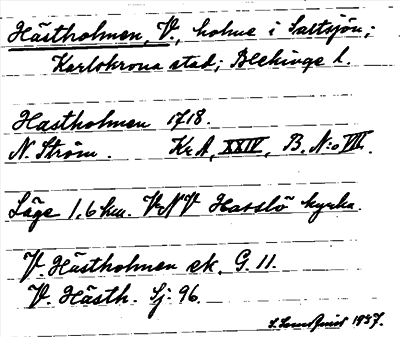 Hästholmen, V., holme i Saltsjön;
Karlskrona stad; Blekinge l.
Hastholmen 1718.
N. Ström. Kr. A, XXIV, B. N:o VIII.
Läge 1,6 km. VNV Hasslö kyrka.
V. Hästholmen ek. G. 11.
V. Hästh. Sj: 96.
1937.